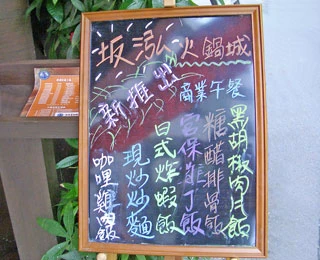 坂泓火鍋城
新推出
商業午餐
黑胡椒肉片飯
糖醋排骨飯
宮保雞丁飯
日式炸蝦飯
現炒炒麵
咖哩雞飯